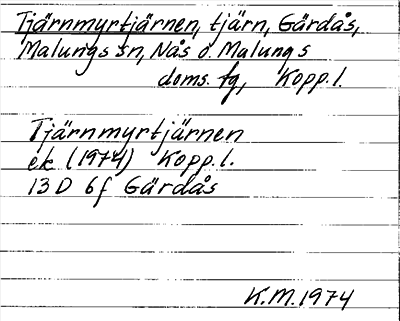 Tjärnmyrtjärnen, tjärn, Gärdås,
Malungs sn, Nås o. Malungs
doms. fg, Kopp. l.
Tjärnmyrtjärnen
ek (1974) Kopp. l.
13 D 6f Gärdås
K.M. 1974